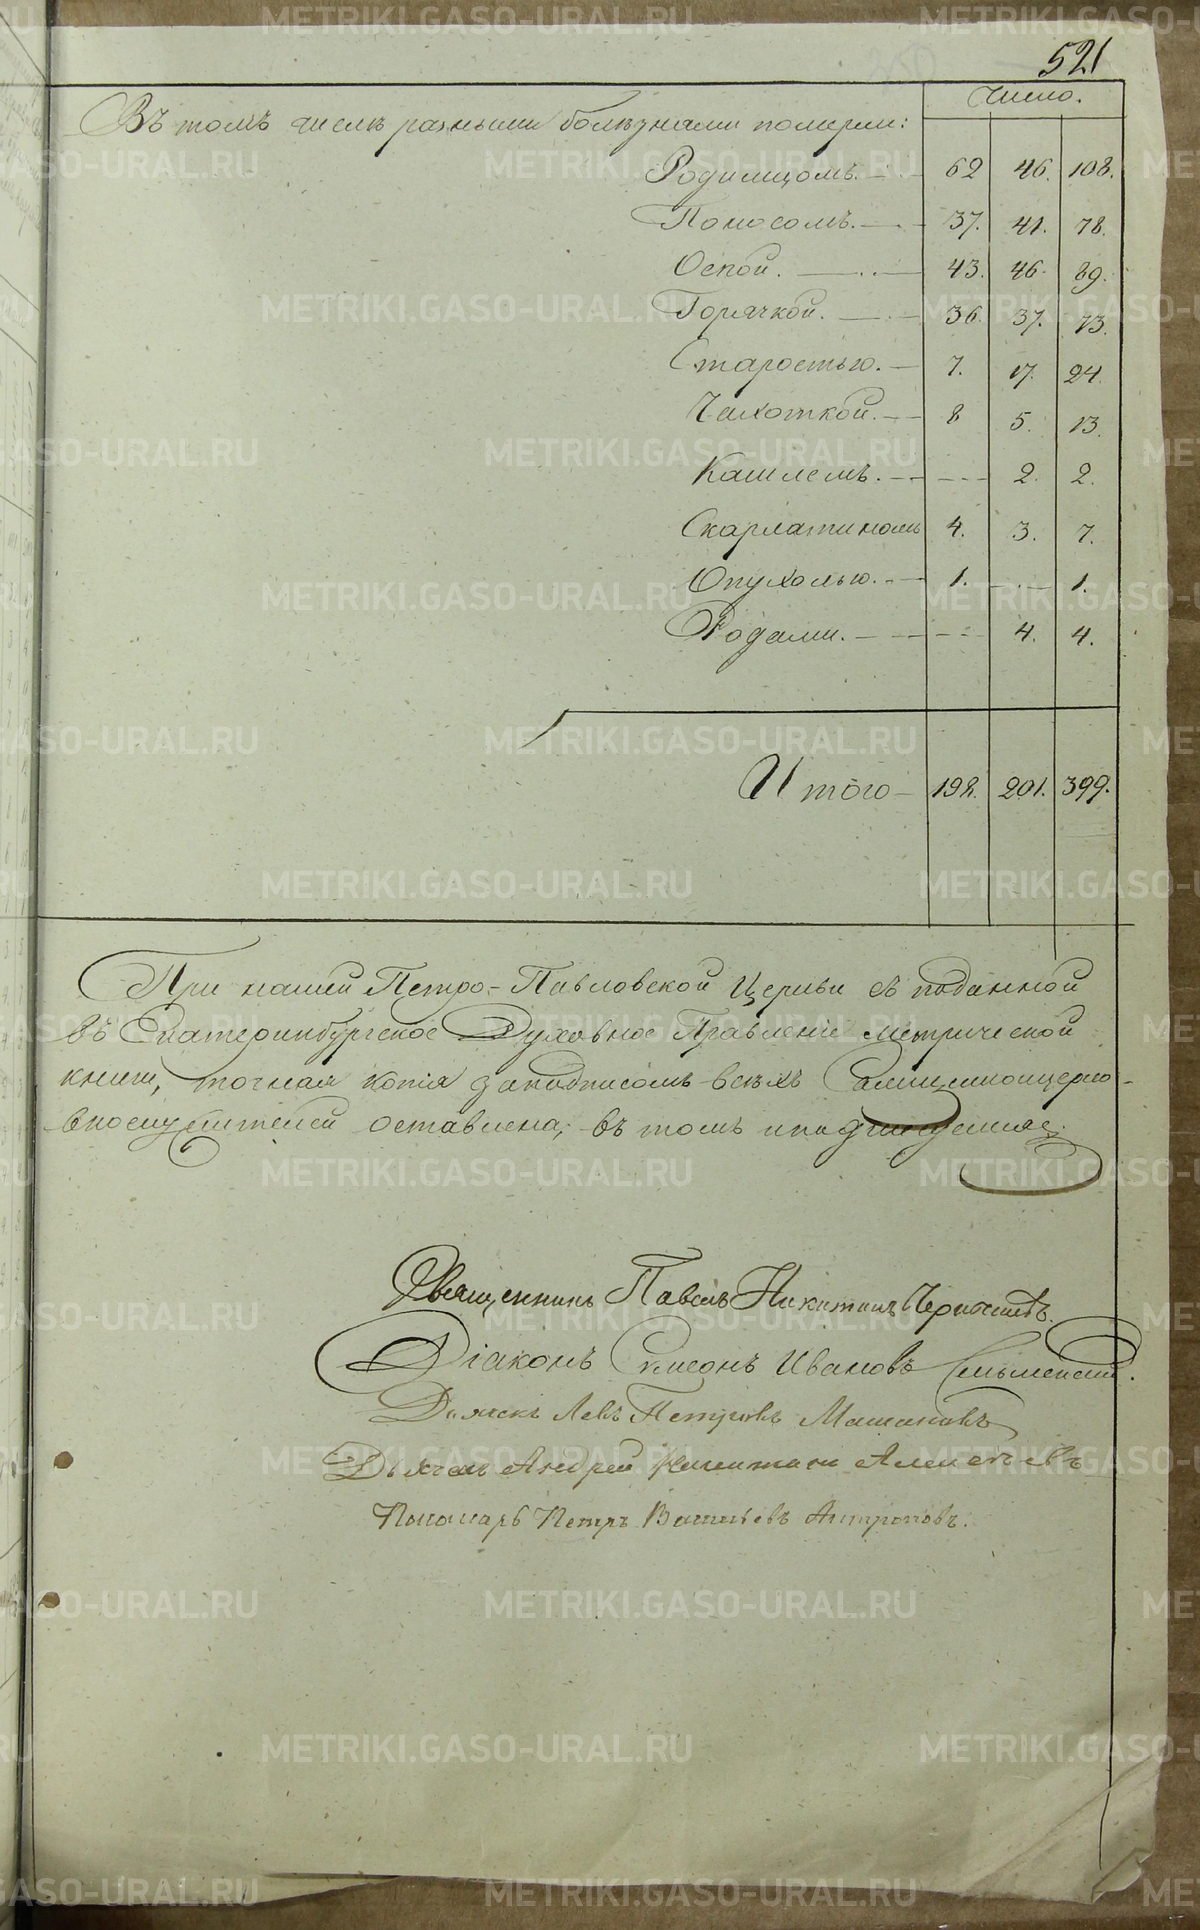 521
Число.
Въ томъ числѣ разными болѣзнами померли:
Родимцомъ. 62 46. 108.
Поносомъ. 37. 41. 78.
Оспой. 43. 46. 89.
Горячкой. 36. 37. 73.
Старостью. 7. 17. 24.
Чахоткой. 8 5. 13.
Кашлемъ. 2. 2.
Скарлатиномъ 4. 3. 7.
Опухолью. 1. 1.
Родами. 4. 4.
Итого 198. 201. 399.
При нашей Петро-Павловской Церкви съ поданной
въ Екатеринбургское Духовное Правленіе метрической
книги, точная копія за подписомъ всѣхъ
оставлена; въ томъ и подписуемся.
Священникъ Павелъ Никитинъ
Діаконъ Симеонъ Ивановъ
Дьячекъ Левъ Петровъ
Дьячекъ Андрей Алексѣевъ
Пономарь Петръ Васильевъ Антроповъ.
METRIKI.GASO-URAL.RU